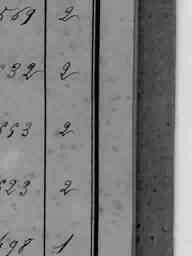 569 2
532 2
553 2
523 2
498 1